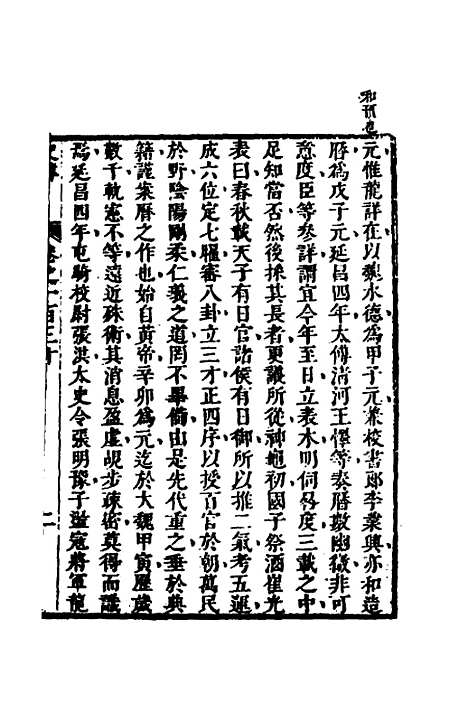 和刊也
元惟龍詳在以魏水德為甲子元兼校書郎李業興亦和造
曆為戊子元延昌四年太傅清河王懌等奏曆數幽微非可
意度臣等參詳謂宜今年至日立表木明伺晷度三載之中
足知當否然後採其長者更議所從神龜初國子祭酒崔光
表曰春秋載天子有日官諸侯有日御所以推二氣考五運
成六位定七曜審八卦立三才正四序以授百官於朝萬民
於野陰陽剛柔仁義之道罔不畢備由是先代重之垂於典
籍謹案曆之作也始自黃帝辛卯為元迄於大魏甲寅歷歲
數千軌憲不等遠近殊術其消息盈虛覘步疎密莫得而識
焉延昌四年屯騎校尉張洪太史令張明豫子盪寇將軍龍
卷之一百三十
二